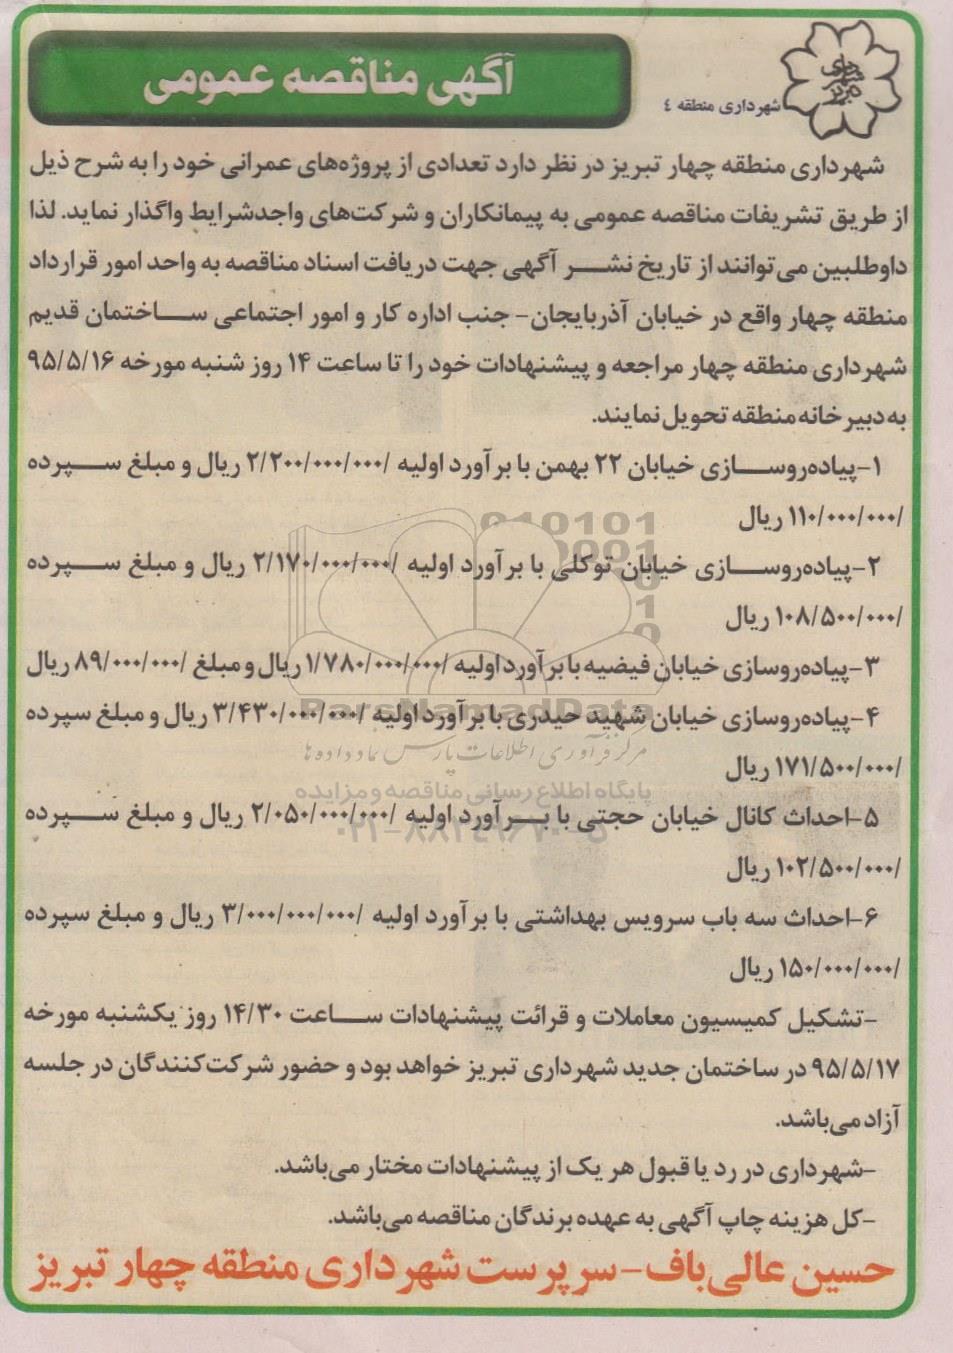 شهرداری تبریز
شهرداری منطقه ٤
آگهی مناقصه عمومی
شهرداری منطقه چهار تبریز در نظر دارد تعدادی از پروژه‌های عمرانی خود را به شرح ذیل
از طریق تشریفات مناقصه عمومی به پیمانکاران و شرکت‌های واجدشرایط واگذار نماید. لذا
داوطلبین می‌توانند از تاریخ نشر آگهی جهت دریافت اسناد مناقصه به واحد امور قرارداد
منطقه چهار واقع در خیابان آذربایجان- جنب اداره کار و امور اجتماعی ساختمان قدیم
شهرداری منطقه چهار مراجعه و پیشنهادات خود را تا ساعت ۱۴ روز شنبه مورخه ۹۵/۵/۱۶
به دبیرخانه منطقه تحویل نمایند.
۱-پیاده‌روسازی خیابان ۲۲ بهمن با برآورد اولیه /۲/۲۰۰/۰۰۰/۰۰۰ ریال و مبلغ سپرده
/۱۱۰/۰۰۰/۰۰۰ ریال
۲-پیاده‌روسازی خیابان توکلی با برآورد اولیه /۲/۱۷۰/۰۰۰/۰۰۰ ریال و مبلغ سپرده
/۱۰۸/۵۰۰/۰۰۰ ریال
۳-پیاده‌روسازی خیابان فیضیه با برآورد اولیه /۱/۷۸۰/۰۰۰/۰۰۰ ریال و مبلغ /۸۹/۰۰۰/۰۰۰ ریال
۴-پیاده‌روسازی خیابان شهید حیدری با برآورد اولیه /۳/۴۳۰/۰۰۰/۰۰۰ ریال و مبلغ سپرده
/۱۷۱/۵۰۰/۰۰۰ ریال
۵-احداث کانال خیابان حجتی با برآورد اولیه /۲/۰۵۰/۰۰۰/۰۰۰ ریال و مبلغ سپرده
/۱۰۲/۵۰۰/۰۰۰ ریال
۶-احداث سه باب سرویس بهداشتی با برآورد اولیه /۳/۰۰۰/۰۰۰/۰۰۰ ریال و مبلغ سپرده
/۱۵۰/۰۰۰/۰۰۰ ریال
-تشکیل کمیسیون معاملات و قرائت پیشنهادات ساعت ۱۴/۳۰ روز یکشنبه مورخه
۹۵/۵/۱۷ در ساختمان جدید شهرداری تبریز خواهد بود و حضور شرکت‌کنندگان در جلسه
آزاد می‌باشد.
-شهرداری در رد یا قبول هر یک از پیشنهادات مختار می‌باشد.
-کل هزینه چاپ آگهی به عهده برندگان مناقصه می‌باشد.
حسین عالی‌باف-سرپرست شهرداری منطقه چهار تبریز
ParsNamadData
مرکز فرآوری اطلاعات پارس نماد داده‌ها
پایگاه اطلاع رسانی مناقصه و مزایده
۰۲۱-۸۸۳۴۹۶۷۰-۵